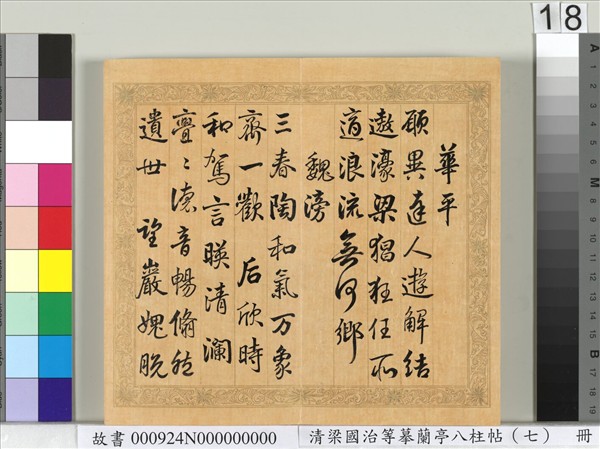 華平
願異達人遊解結
遨濠梁猖狂任所
適浪流無何鄉
魏滂
三春陶和氣万象
齊一歡 后欣時
和駕言暎清瀾
亹〻德音暢翛然
遺世 望巖愧脫
18
故書 000924N000000000 清梁國治等摹蘭亭八柱帖（七） 冊